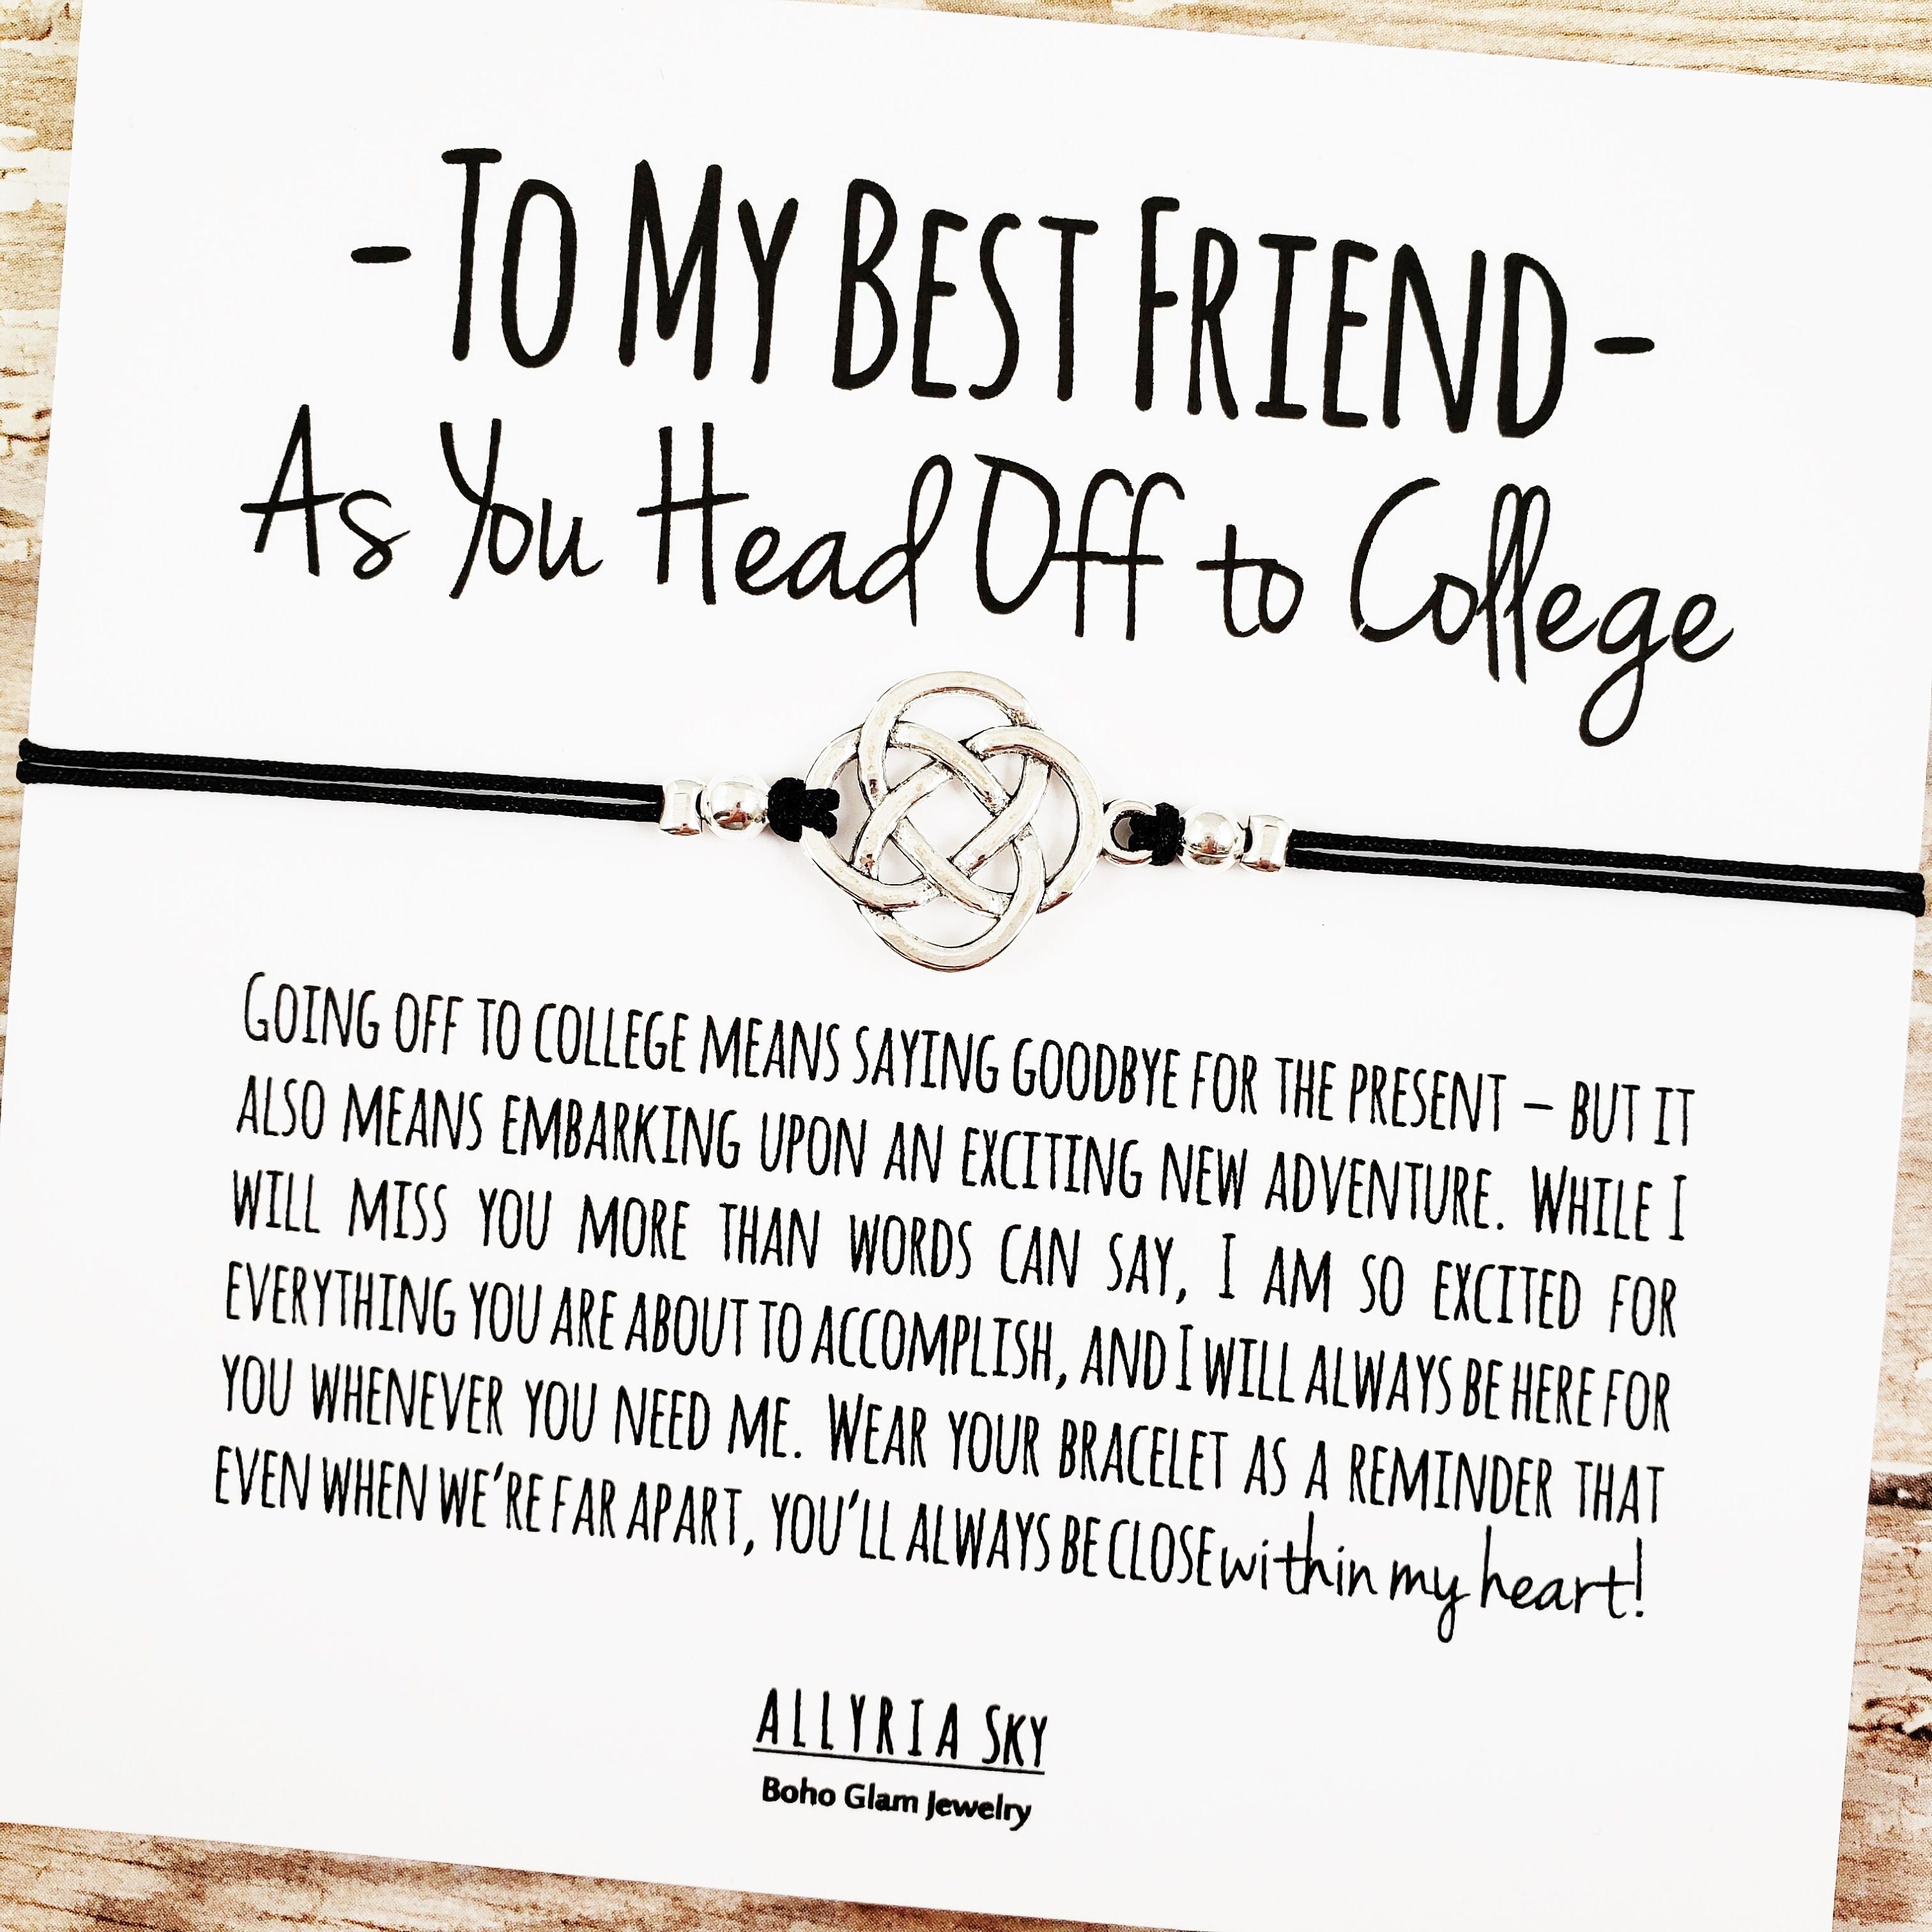 - To My Best Friend -
As You Head Off to College
Going off to college means saying goodbye for the present – but it
also means embarking upon an exciting new adventure. While I
will miss you more than words can say, I am so excited for
everything you are about to accomplish, and I will always be here for
you whenever you need me. Wear your bracelet as a reminder that
even when we're far apart, you'll always be close within my heart!
Allyria Sky
Boho Glam Jewelry